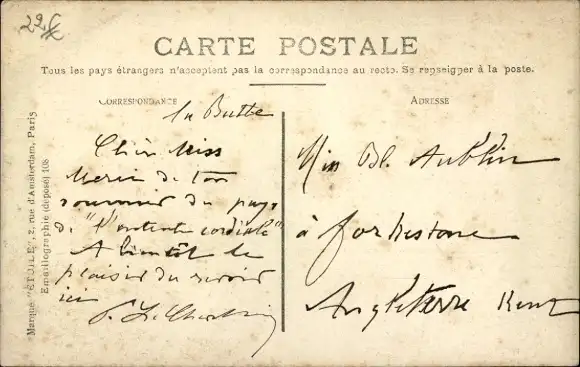 22 £
CARTE POSTALE
Tous les pays étrangers n'acceptent pas la correspondance au recto. Se renseigner à la poste.
CORRESPONDANCE
ADRESSE
Marque "ÉTOILE", 2, rue d'Amsterdam, Paris
Emaillographie (déposé) 108
la Butte
Chère Miss
Merci de ton
souvenir du pays
de "l'entente cordiale"
A bientôt le
plaisir du revoir
ici
Miss Bl. Aublin
à forkestone
Angleterre Kent